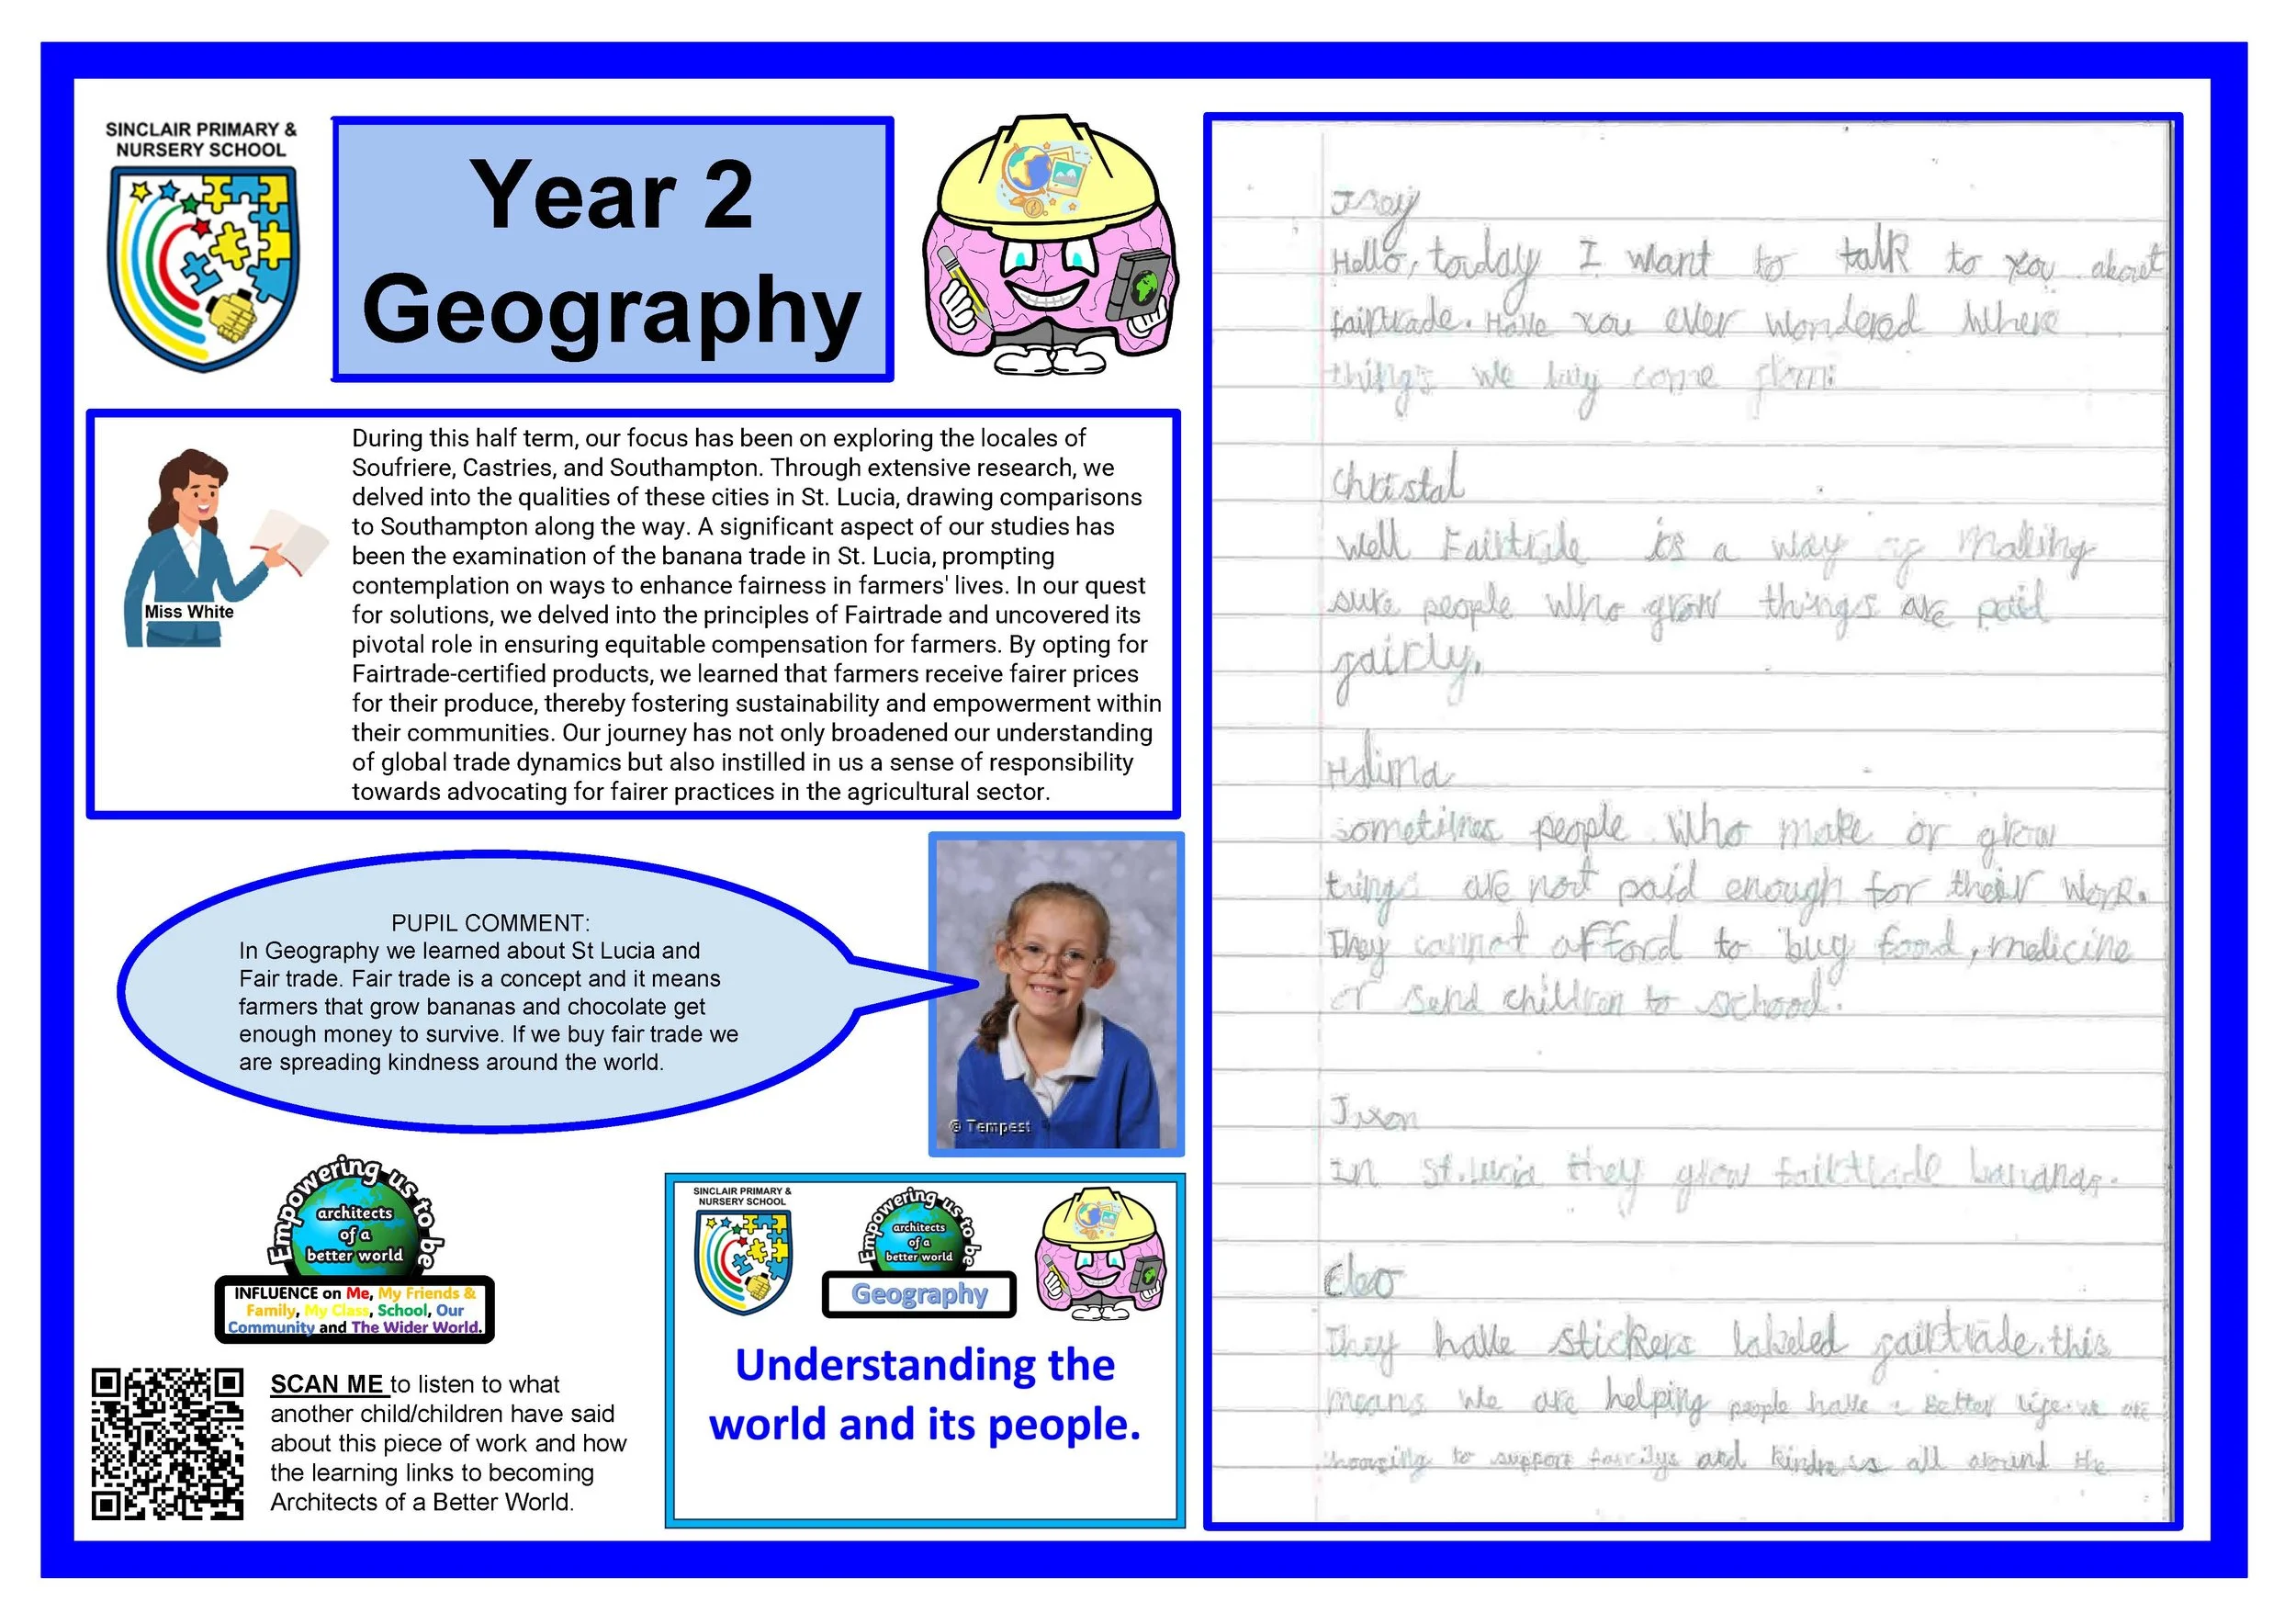 SINCLAIR PRIMARY &
NURSERY SCHOOL
Year 2
Geography
Miss White
During this half term, our focus has been on exploring the locales of
Soufriere, Castries, and Southampton. Through extensive research, we
delved into the qualities of these cities in St. Lucia, drawing comparisons
to Southampton along the way. A significant aspect of our studies has
been the examination of the banana trade in St. Lucia, prompting
contemplation on ways to enhance fairness in farmers' lives. In our quest
for solutions, we delved into the principles of Fairtrade and uncovered its
pivotal role in ensuring equitable compensation for farmers. By opting for
Fairtrade-certified products, we learned that farmers receive fairer prices
for their produce, thereby fostering sustainability and empowerment within
their communities. Our journey has not only broadened our understanding
of global trade dynamics but also instilled in us a sense of responsibility
towards advocating for fairer practices in the agricultural sector.
PUPIL COMMENT:
In Geography we learned about St Lucia and
Fair trade. Fair trade is a concept and it means
farmers that grow bananas and chocolate get
enough money to survive. If we buy fair trade we
are spreading kindness around the world.
© Tempest
Empowering us to be
architects
of a
better world
INFLUENCE on Me, My Friends &
Family, My Class, School, Our
Community and The Wider World.
SCAN ME to listen to what
another child/children have said
about this piece of work and how
the learning links to becoming
Architects of a Better World.
SINCLAIR PRIMARY &
NURSERY SCHOOL
Empowering us to be
architects
of a
better world
Geography
Understanding the
world and its people.
Hello, today I want to talk to you about
fairtrade. Have you ever wondered where
things we buy come from
Christal
Well Fairtrade is a way of making
sure people who grow things are paid
fairly.
Halima
sometimes people who make or grow
tings are not paid enough for their work.
They cannot afford to buy food, medicine
or send children to school.
Jaxon
In St. Lucia they grow fairtrade bananas.
Cleo
They have stickers labeled fairtrade. this
means we are helping people have a better life. we are
choosing to support familys and kindness all around the